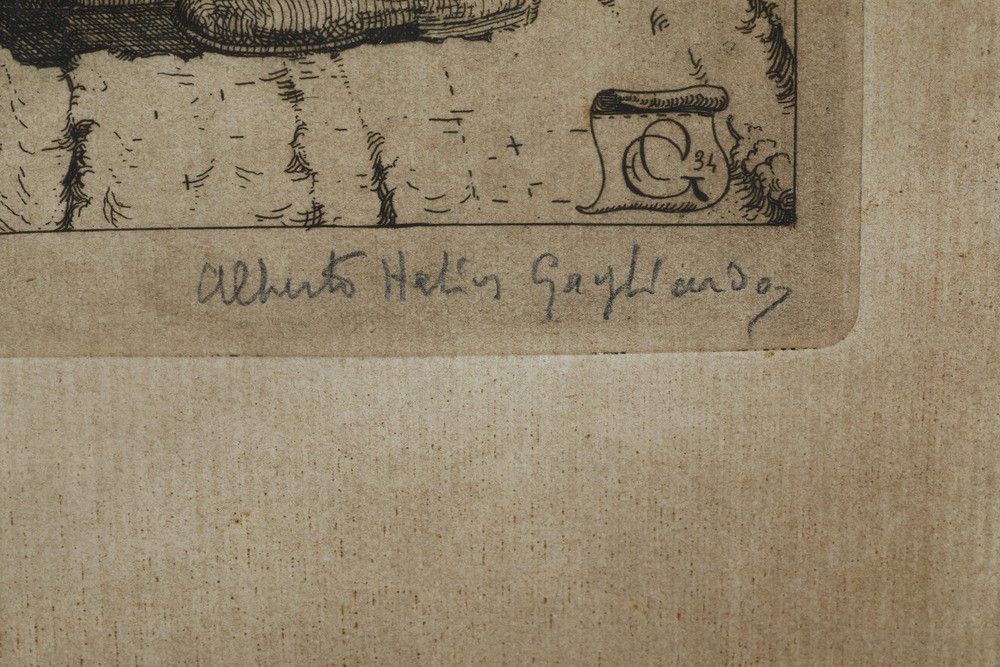 G 34
Alberto Helios Gagliardo